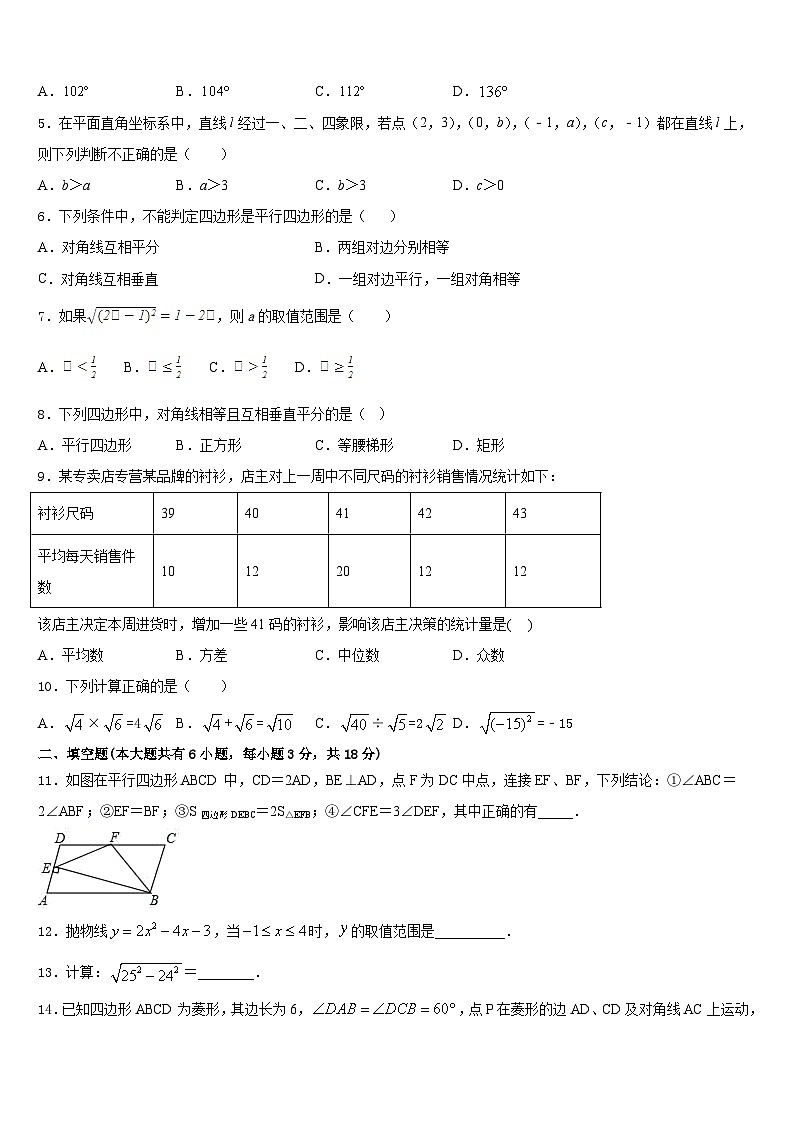 A．102°  B．104°  C．112°  D．136°
5．在平面直角坐标系中，直线 l 经过一、二、四象限，若点（2，3），（0，b），（﹣1，a），（c，﹣1）都在直线 l 上，
则下列判断不正确的是（  ）
A．b＞a  B．a＞3  C．b＞3  D．c＞0
6．下列条件中，不能判定四边形是平行四边形的是（  ）
A．对角线互相平分  B．两组对边分别相等
C．对角线互相垂直  D．一组对边平行，一组对角相等
7．如果√(2□−1)²=1−2□，则 a 的取值范围是（  ）
A．□<1/2  B．□≤1/2  C．□>1/2  D．□≥1/2
8．下列四边形中，对角线相等且互相垂直平分的是（  ）
A．平行四边形  B．正方形  C．等腰梯形  D．矩形
9．某专卖店专营某品牌的衬衫，店主对上一周中不同尺码的衬衫销售情况统计如下：
衬衫尺码  39  40  41  42  43
平均每天销售件
数  10  12  20  12  12
该店主决定本周进货时，增加一些 41 码的衬衫，影响该店主决策的统计量是(  )
A．平均数  B．方差  C．中位数  D．众数
10．下列计算正确的是（  ）
A．√4×√6=4√6  B．√4+√6=√10  C．√40÷√5=2√2  D．√(−15)²=﹣15
二、填空题(本大题共有 6 小题，每小题 3 分，共 18 分)
11．如图在平行四边形 ABCD 中，CD＝2AD，BE⊥AD，点 F 为 DC 中点，连接 EF、BF，下列结论：①∠ABC＝
2∠ABF；②EF＝BF；③S 四边形 DEBC＝2S△EFB；④∠CFE＝3∠DEF，其中正确的有_____．
D  F  C
E
A  B
12．抛物线 y=2x²−4x−3，当−1≤x≤4时，y 的取值范围是__________．
13．计算：√25²−24²＝________．
14．已知四边形 ABCD 为菱形，其边长为 6，∠DAB=∠DCB=60°，点 P 在菱形的边 AD、CD 及对角线 AC 上运动，